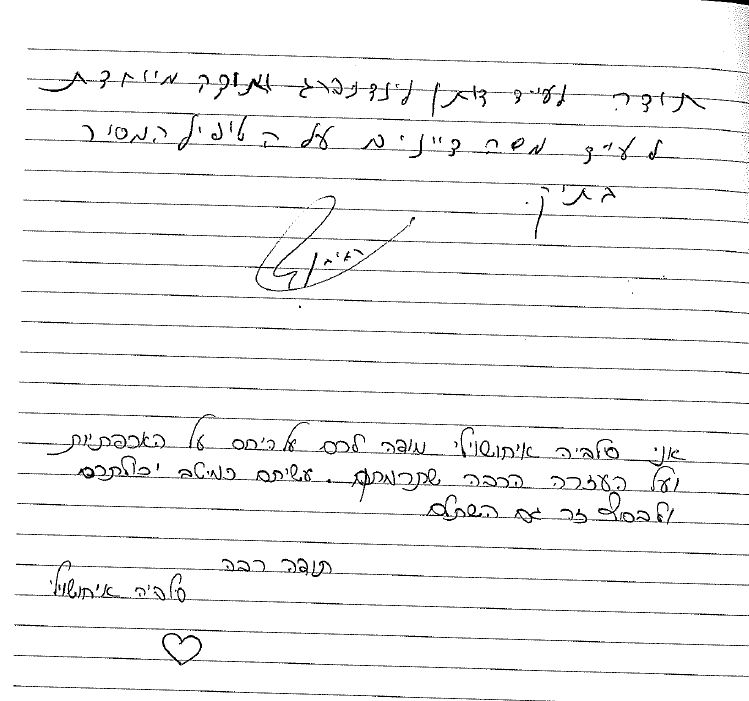 תודה לעו״ד דותן לינדנברג ותודה מיוחדת
לעו״ד משה דיינים על הטיפול המסור
בתיק.
אני סלביה איחושוילי מודה לכם על היחס על האכפתיות
ועל העזרה הרבה שתרמתם. עשיתם כמיטב יכולתכם
ולבסוף זה גם השתלם
תודה רבה
סלביה איחושוילי